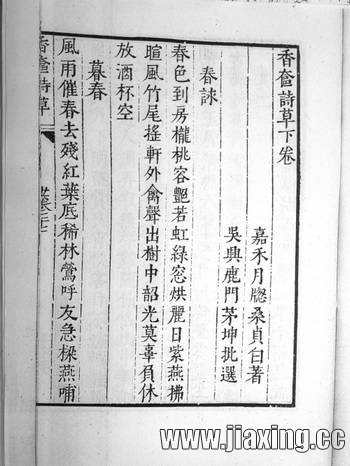 香奩詩草下卷
嘉禾月牕桑貞白著
吳興鹿門茅坤批選
春詠
春色到房櫳桃容艷若虹綠窓烘麗日紫燕拂
暄風竹尾搖軒外禽聲出樹中韶光莫辜負休
放酒杯空
暮春
風雨催春去殘紅葉底稀林鶯呼友急樑燕哺
香奩詩草
www.jiaxing.cc